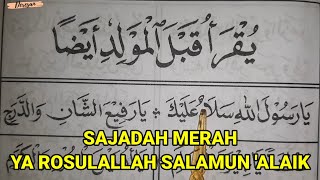 يُقْرَأُ قَبْلَ الْمَوْلِدِ أَيْضًا
يَارَسُولَ اللهِ سَلَامٌ عَلَيْكَ ۞ يَارَفِيْعَ الشَّانِ وَالدَّرَجِ
SAJADAH MERAH
YA ROSULALLAH SALAMUN ALAIK